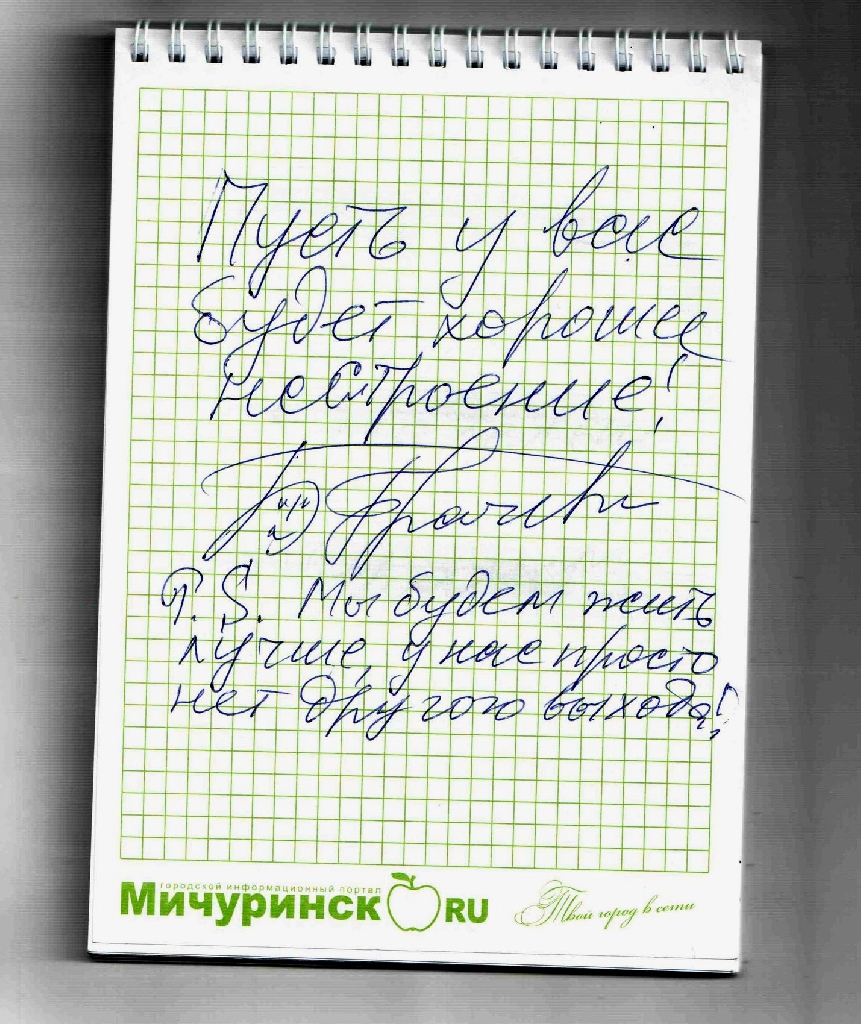 Пусть у вас
будет хорошее
настроение!
P.S. Мы будем жить
лучше, у нас просто
нет другого выхода!
городской информационный портал
Мичуринск RU
Твой город в сети